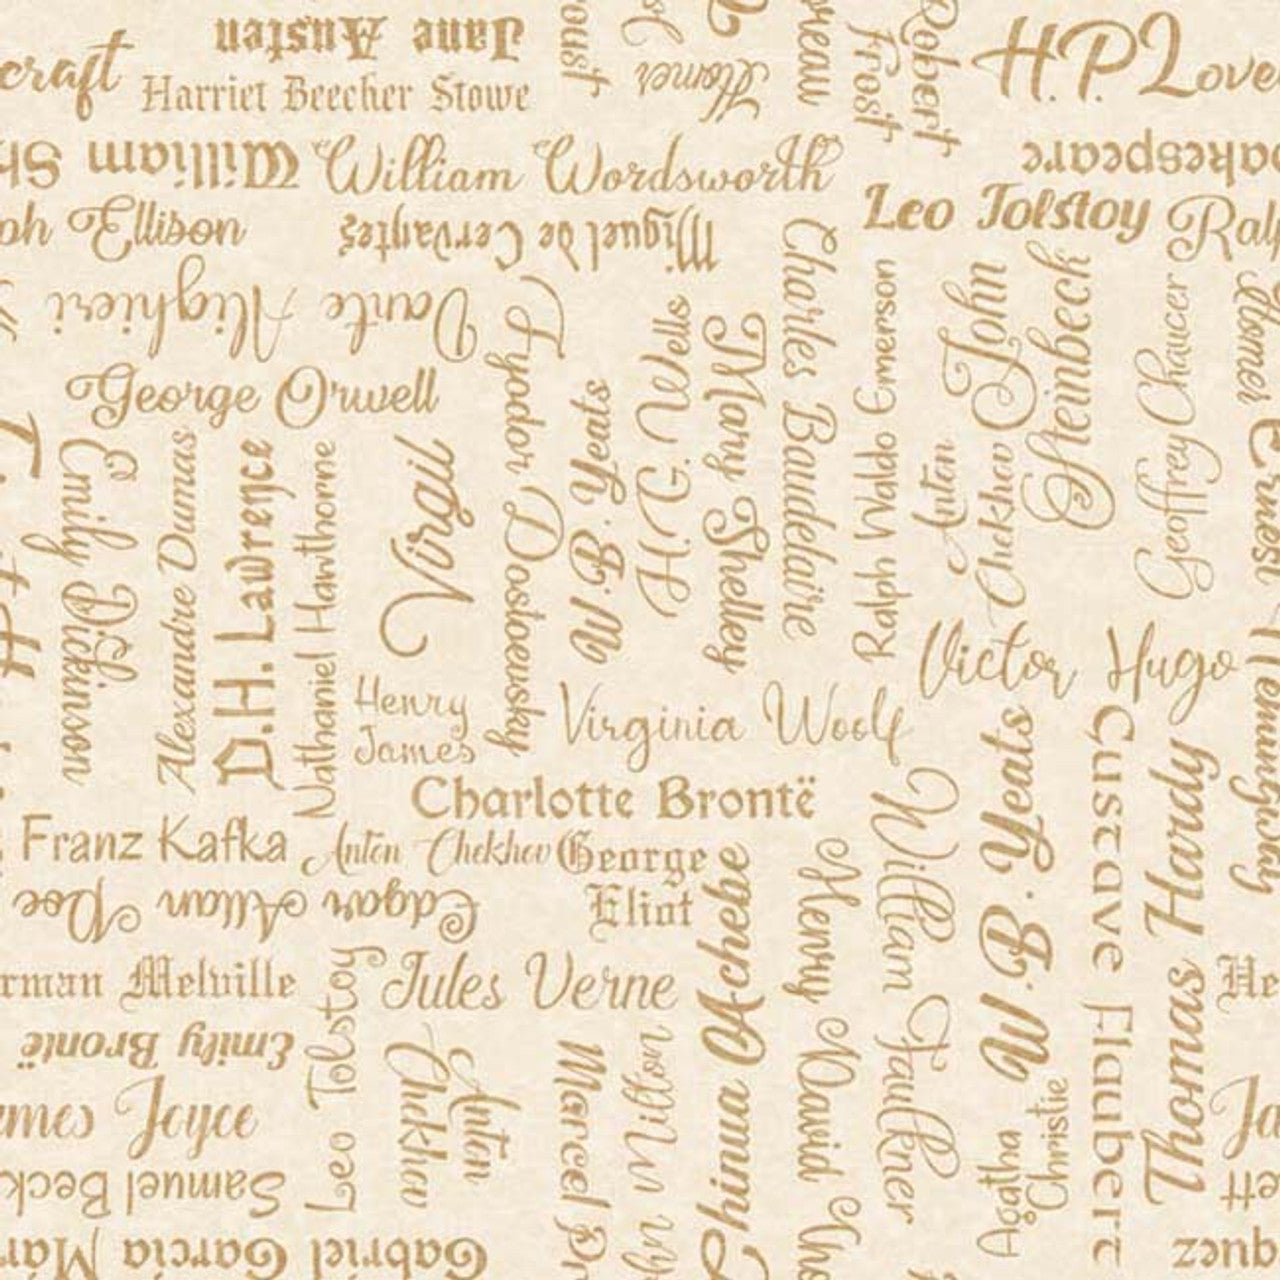 Jane Austen
oust
Homer
reau
Robert
Frost
H.P. Love
craft
Harriet Beecher Stowe
William Sh
William Wordsworth
akespeare
Leo Tolstoy
Ralp
ph Ellison
Miguel de Cervantes
Charles Baudelaire
Dante Alighieri
Fyodor Dostoevsky
H.G. Wells
Mary Shelley
Ralph Waldo Emerson
John
Steinbeck
Geoffrey Chaucer
Homer
George Orwell
W.B. Yeats
Anton
Chekhov
Ernest Hemingway
Emily Dickinson
Alexandre Dumas
D.H. Lawrence
Nathaniel Hawthorne
Virgil
Victor Hugo
Henry
James
Virginia Woolf
Custave Flaubert
Thomas Hardy
Charlotte Brontë
William Faulkner
W.B. Yeats
Franz Kafka
Anton Chekhov
George
Eliot
Chinua Achebe
Henry David Tho
Edgar Allan Poe
rman Melville
Leo Tolstoy
Jules Verne
He
Emily Brontë
Anton
Chekhov
Marcel Pr
hn Milton
Agatha
Christie
ames Joyce
Ja
Samuel Beck
ett
Gabriel Garcia Mar
quez